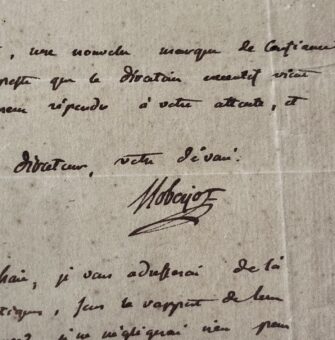 , une nouvelle marque de Confiance
que le directoire executif vient
répondre à votre attente, et
directeur, votre dévoué.
je vous adresserai de là
sous le rapport de leur
je ne négligerai rien pour